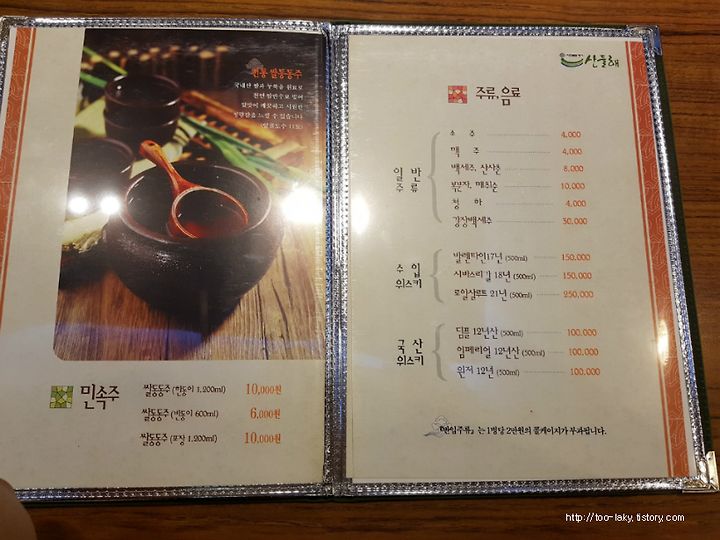 전통 쌀동동주
국내산 쌀과 누룩을 원료로
천연 암반수로 빚어
입맛이 깨끗하고 시원한
청량감을 느낄 수 있습니다
민속주
쌀동동주 (한동이 1,200ml) 10,000원
쌀동동주 (반동이 600ml) 6,000원
쌀동동주 (포장 1,200ml) 10,000원
산들해
주류,음료
일반 주류
소 주 4,000
맥 주 4,000
백세주, 산사춘 8,000
복분자, 매취순 10,000
청 하 4,000
강장백세주 30,000
수입 위스키
발렌타인17년 (500ml) 150,000
시바스리갈 18년 (500ml) 150,000
로얄살루트 21년 (500ml) 250,000
국산 위스키
딤플 12년산 (500ml) 100,000
임페리얼 12년산 (500ml) 100,000
윈저 12년 (500ml) 100,000
『반입주류』는 1병당 2만원의 콜케이지가 부과됩니다.
http://too-laky.tistory.com/